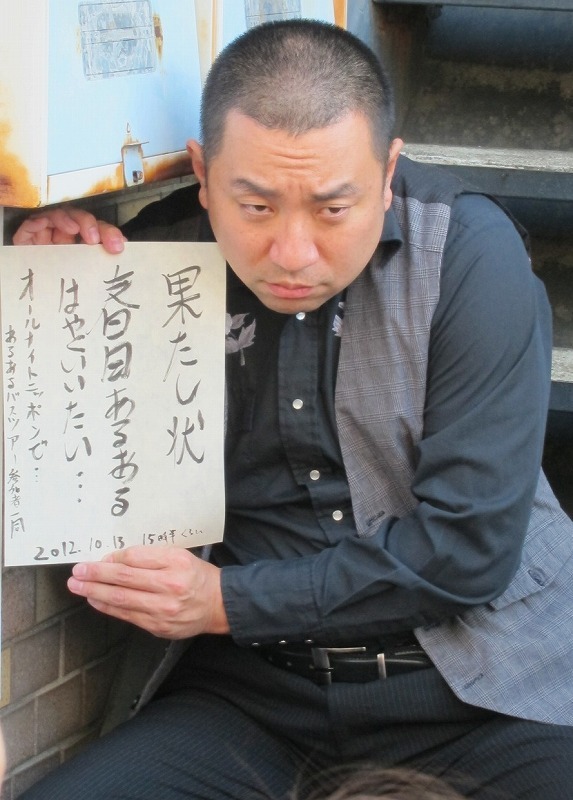 果たし状
春日あるある
はやくいいたい…
オールナイトニッポンで…
あるあるバスツアー参加者一同
2012.10.13 15時半くらい